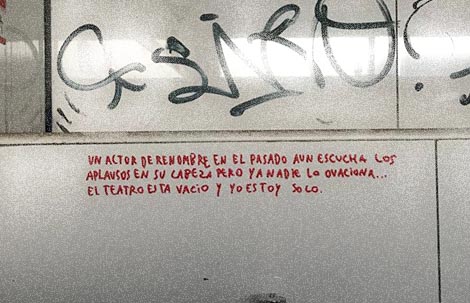 UN ACTOR DE RENOMBRE EN EL PASADO AUN ESCUCHA LOS
APLAUSOS EN SU CABEZA PERO YA NADIE LO OVACIONA...
EL TEATRO ESTA VACIO Y YO ESTOY SOLO.